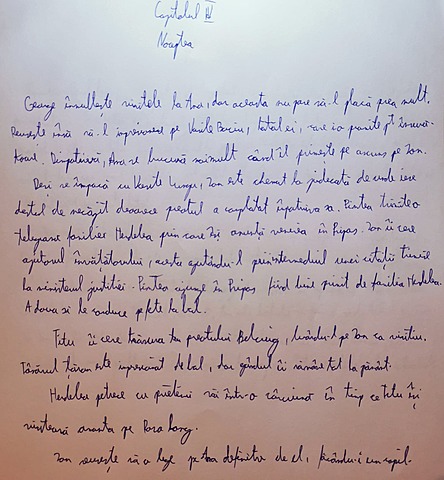 Capitolul IV
Noaptea
George înmulțește vizitele la Ana, dar aceasta nu pare să-l placă prea mult.
Reușește însă să-l impresioneze pe Vasile Baciu, tatăl ei, care i-o promite pt însură-
toare. Dimpotrivă, Ana se bucură mai mult când îl primește pe ascuns pe Ion.
Deși se împacă cu Vasile Lungu, Ion este chemat la judecată de unde iese
destul de necăjit deoarece preotul a complotat împotriva sa. Pintea trimite o
telegramă familiei Herdelea prin care își anunță venirea în Pripas. Ion îi cere
ajutorul învățătorului, acesta ajutându-l prin intermediul unei citații trimise
la ministerul justiției. Pintea ajunge în Pripas fiind bine primit de familia Herdelea.
A doua zi le conduce pe fete la bal.
Titu îi cere trăsura lui preotului Belciug, luându-l pe Ion ca vizitiu.
Tânărul țăran este impresionat de bal, dar gândul îi rămâne tot la pământ.
Herdelea petrece cu prietenii săi într-o cârciumă în timp ce Titu își
vizitează amanta pe Roza Lang.
Ion reușește să o lege pe Ana definitiv de el, făcându-i un copil.